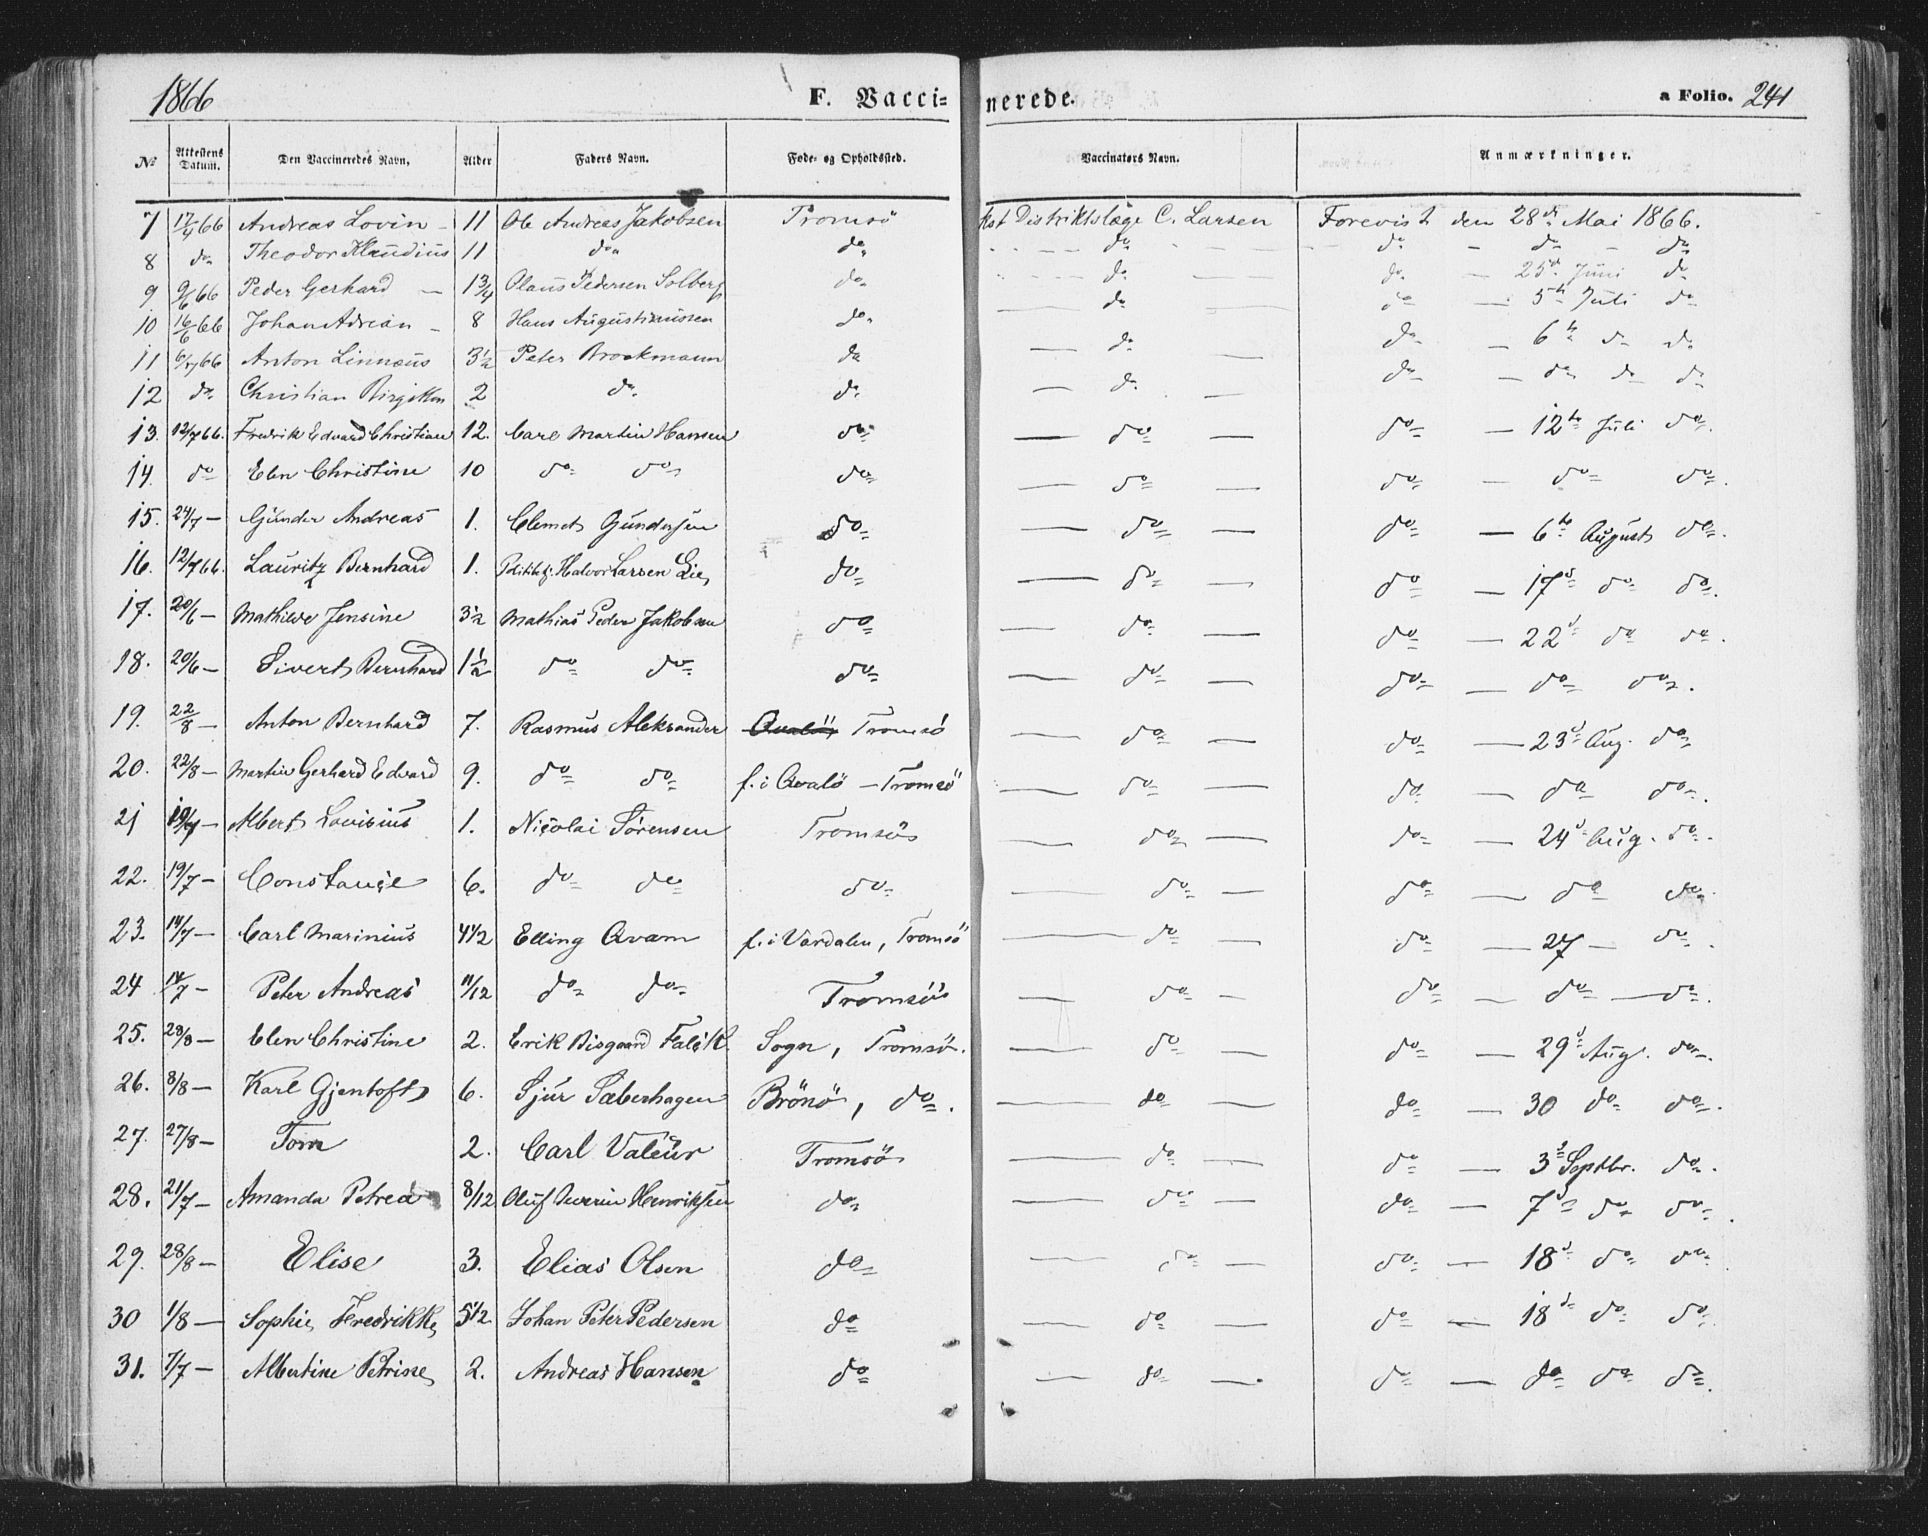 1866 F. Vacci= nerede. a Folio. 241
No Attestens Datum. Den Vaccineredes Navn, Alder Faders Navn. Føde- og Opholdssted. Vaccinatørs Navn. Anmærkninger.
7 17/4 66 Andreas Lovin - 11 Ole Andreas Jakobsen Tromsö kst Distriktslæge C. Larsen Forevist den 28d Mai 1866.
8 do Theodor Klaudius 11 do do - - do do - do - do
9 9/6 66 Peder Gerhard - 1 3/4 Olaus Pedersen Solberg do - do - do - 25d Juni do
10 16/6 66 Johan Adrian - 8 Hans Augustinussen do - do - do - 5te Juli do
11 6/7 66 Anton Linnæus 3 1/2 Peter Brockmann do - do - do - 6te do do
12 do Christian 2 do do - do - do - do do do
13. 12/7 66. Fredrik Edvard Christian 12. Carl Martin Hansen do - do - do - 12te Juli do.
14. do Elen Christine 10 do do do - do - do - do do.
15. 24/7 - Gunder Andreas 1. Clemet Gundersen do - do - do - 6te August do.
16. 12/7 66. Lauritz Bernhard 1. Politibtj. Halvor Larsen Lie do - do - do - 17d do do.
17. 20/6 - Mathilde Jensine 3 1/2 Mathias Peder Jakobsen do - do - do - 22d do do.
18. 20/6 - Sivert Bernhard 1 1/2 do do do - do - do - do do.
19. 22/8 - Anton Bernhard 7. Rasmus Aleksander Qvalö, Tromsö - do - do - 23d Aug. do
20. 22/8 - Martin Gerhard Edvard 9. do do f. i Qvalö - Tromsö - do - do - do do.
21 19/7 - Albert Lovisius 1. Nicolai Sörensen Tromsö - do - do - 24d Aug. do.
22. 19/7 - Constance 6. do do do - do - do - do do.
23. 14/7 - Carl Marinius 4 1/2 Elling Qvam f. i Værdalen, Tromsö - do - do - 27 - do.
24 14/7 - Peter Andreas 11/12 do do Tromsö - do - do - do - do.
25. 28/8 - Elen Christine 2. Erik Bisgaard Falck Sogn, Tromsö. - do - do - 29d Aug. do.
26. 8/8 - Karl Gjentoft 6. Sjur Sæberhagen Brönö, do. - do - do - 30 do do.
27. 27/8 - Tom 2. Carl Valeur Tromsö - do - do - 3d Septbr. do.
28. 21/7 - Amanda Petrea 8/12 Oluf Severin Henriksen do - do - do - 7d do do.
29. 28/8 - Elise 3. Elias Olsen do - do - do - 18d do do.
30 1/8 - Sophie Fredrikke 5 1/2 Johan Peter Pedersen do - do - do - 18d do do.
31. 7/7 - Albertine Petrine 2. Andreas Hansen do - do - do - do do do.